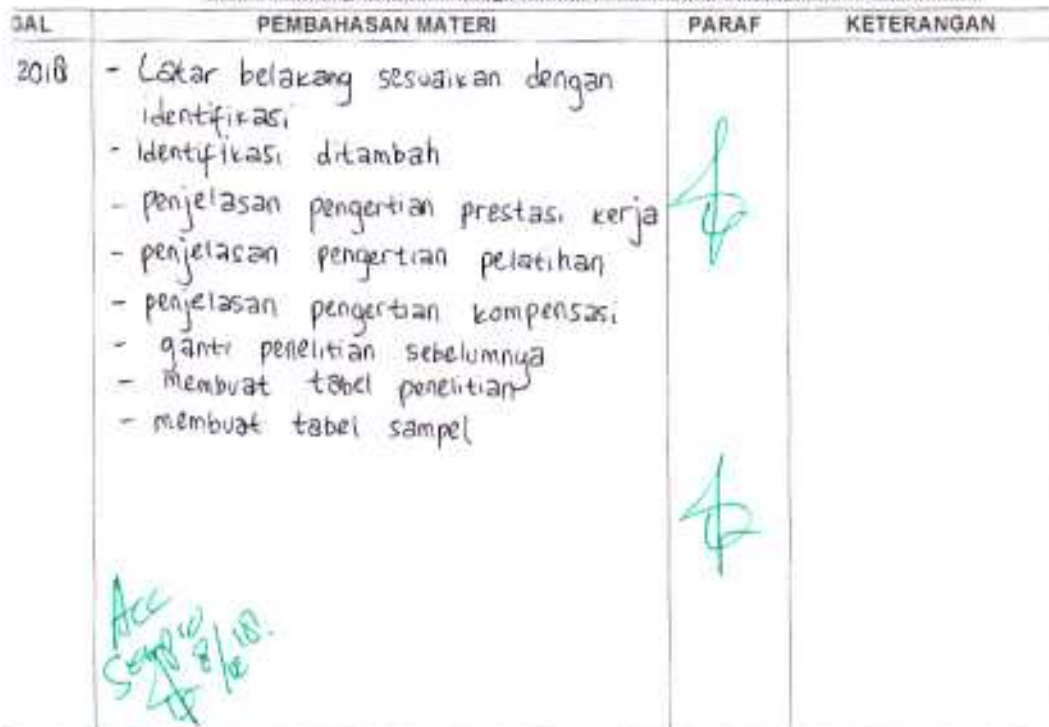 GAL PEMBAHASAN MATERI PARAF KETERANGAN
2018 - Latar belakang sesuaikan dengan
identifikasi
- identifikasi ditambah
- penjelasan pengertian prestasi kerja
- penjelasan pengertian pelatihan
- penjelasan pengertian kompensasi
- ganti penelitian sebelumnya
- membuat tabel penelitian
- membuat tabel sampel
Acc